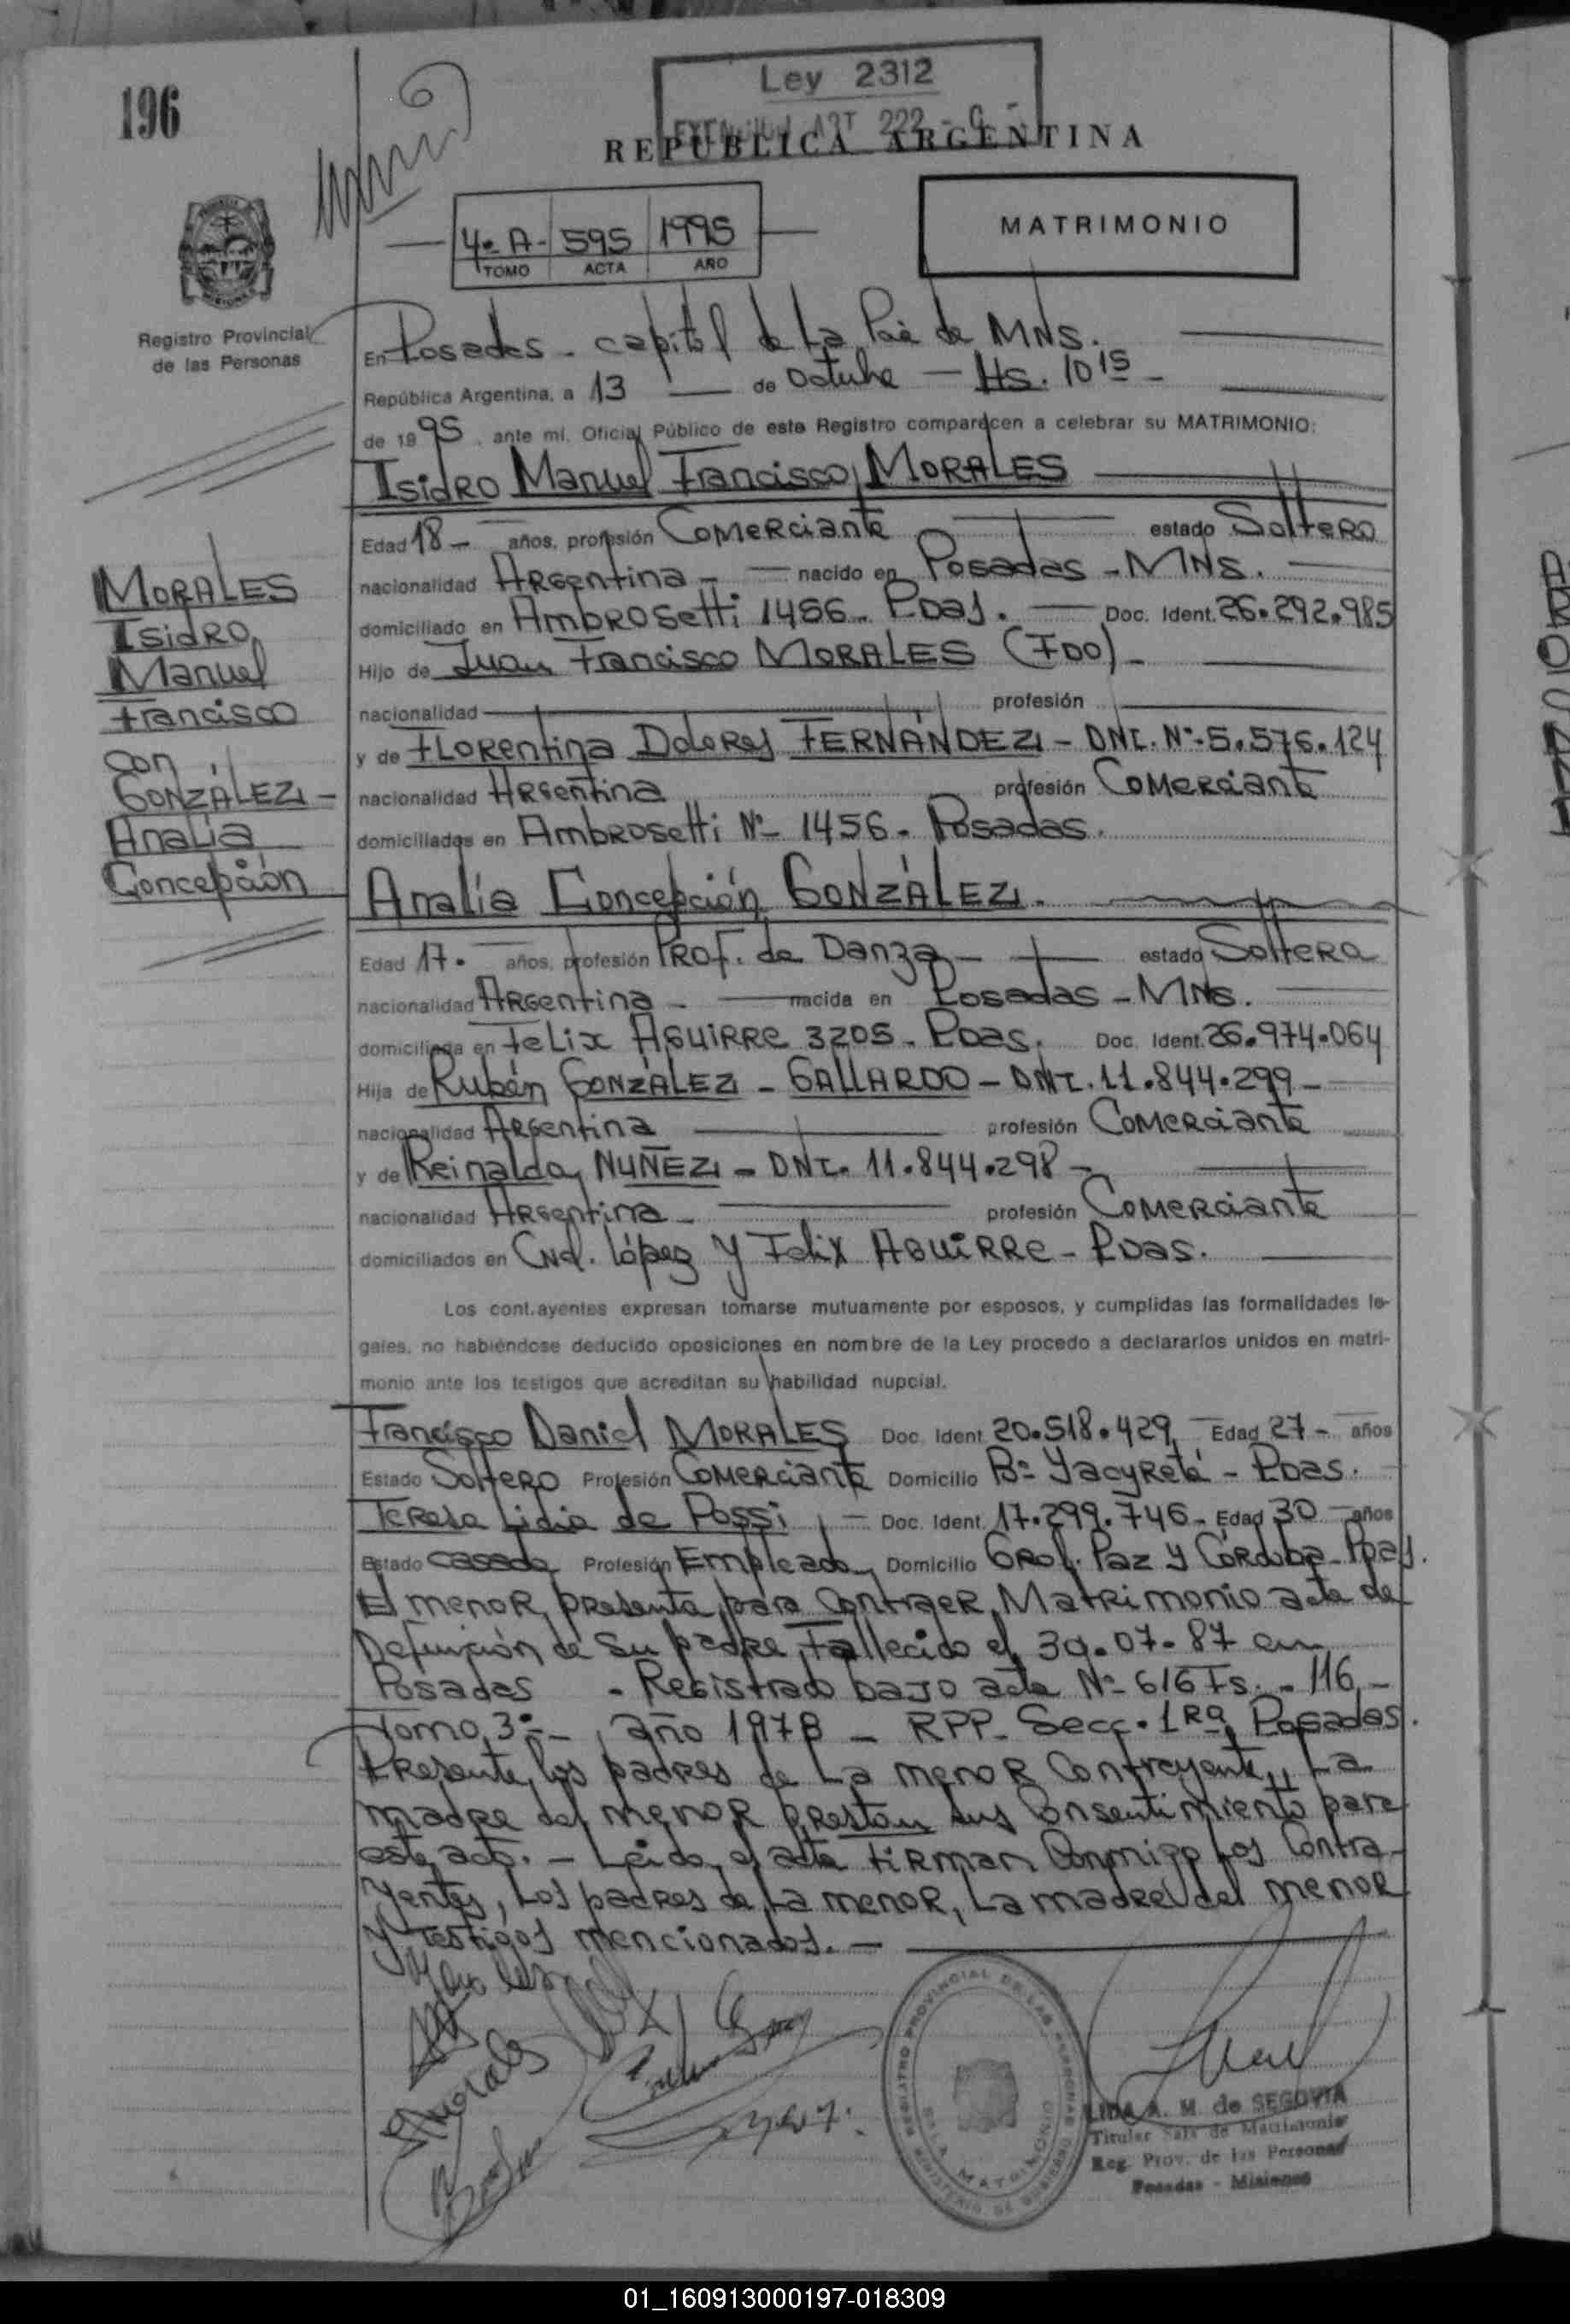 196
Ley 2312
EXENCION ART 222 - C -
REPUBLICA ARGENTINA
4º A - 595 1995
TOMO ACTA AÑO
MATRIMONIO
Registro Provincial
de las Personas
En Posadas - capital de La Pcia de MNS.
República Argentina, a 13 de Octubre - Hs. 10 15 -
de 1995, ante mí, Oficial Público de este Registro comparecen a celebrar su MATRIMONIO:
Isidro Manuel Francisco MORALES
Edad 18 - años, profesión Comerciante estado Soltero
nacionalidad Argentina - nacido en Posadas - MNS.
domiciliado en Ambrosetti 1456 - Pdas. Doc. Ident. 26.292.985
Hijo de Juan Francisco MORALES (FDO) -
nacionalidad profesión
y de Florentina Dolores FERNÁNDEZ - DNI. Nº 5.576.124
nacionalidad Argentina profesión Comerciante
domiciliados en Ambrosetti Nº 1456 - Posadas.
MORALES
Isidro
Manuel
Francisco
con
GONZÁLEZ -
Analía
Concepción
Analía Concepción GONZÁLEZ.
Edad 17. años, profesión Prof. de Danza - estado Soltera
nacionalidad Argentina - nacida en Posadas - MNS.
domiciliada en Felix Aguirre 3205 - Pdas. Doc. Ident. 26.974.064
Hija de Rubén GONZÁLEZ - GALLARDO - DNI. 11.844.299 -
nacionalidad Argentina profesión Comerciante
y de Reinalda NUÑEZ - DNI. 11.844.298 -
nacionalidad Argentina - profesión Comerciante
domiciliados en Cnel. López y Felix Aguirre - Pdas.
Los cont.ayentes expresan tomarse mutuamente por esposos, y cumplidas las formalidades le-
gales, no habiéndose deducido oposiciones en nombre de la Ley procedo a declararlos unidos en matri-
monio ante los testigos que acreditan su habilidad nupcial.
Francisco Daniel MORALES Doc. Ident. 20.518.429 Edad 27 - años
Estado Soltero Profesión Comerciante Domicilio Bº Yacyretá - Pdas.
Teresa Lidia de Possi - Doc. Ident. 17.299.746 - Edad 30 años
Estado casada Profesión Empleada Domicilio Gral. Paz y Córdoba - Pdas.
El menor, presenta para Contraer Matrimonio acta de
Defunción de su padre, Fallecido el 30-07-87 en
Posadas - Registrado bajo acta Nº 616 Fs. - 116 -
Tomo 3º - , año 1978 - RPP - Secc. 1Ra, Posadas.
Presente, los padres de La menor Contrayente, La
madre del menor prestan sus Consentimiento para
este acto. - Leida el acta Firman Conmigo Los Contra-
yentes, Los padres de La menor, La madre del menor
y testigos mencionados. -
Morales
REGISTRO PROVINCIAL DE LAS PERSONAS
SALA MATRIMONIO
MINISTERIO DE GOBIERNO
LIDA A. M. de SEGOVIA
Titular Sala de Matrimonio
Reg. Prov. de las Personas
Posadas - Misiones
01_160913000197-018309